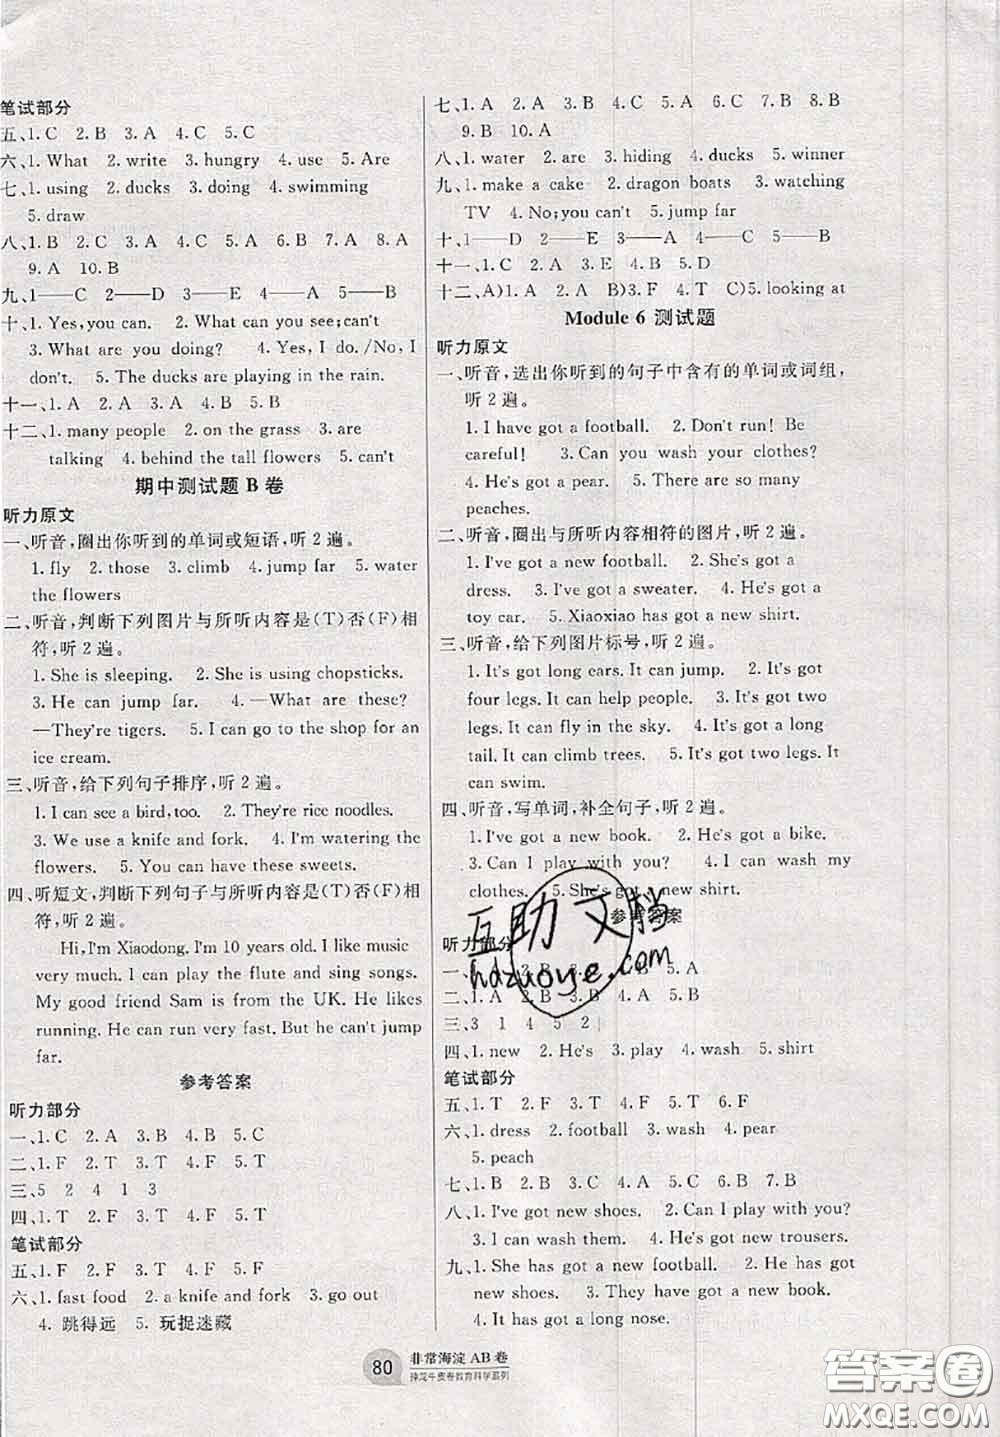 笔试部分
五、1. C 2. B 3. A 4. C 5. C
六、1. What 2. write 3. hungry 4. use 5. Are
七、1. using 2. ducks 3. doing 4. swimming
5. draw
八、1. B 2. C 3. A 4. C 5. A 6. B 7. B 8. A
9. A 10. B
九、1——C 2——D 3——E 4——A 5——B
十、1. Yes, you can. 2. What can you see; can't
3. What are you doing? 4. Yes, I do./No, I
don't. 5. The ducks are playing in the rain.
十一、1. A 2. A 3. B 4. A 5. B
十二、1. many people 2. on the grass 3. are
talking 4. behind the tall flowers 5. can't
期中测试题 B 卷
听力原文
一、听音,圈出你听到的单词或短语,听 2 遍。
1. fly 2. those 3. climb 4. jump far 5. water
the flowers
二、听音,判断下列图片与所听内容是(T)否(F)相
符,听 2 遍。
1. She is sleeping. 2. She is using chopsticks.
3. He can jump far. 4. —What are these?
—They're tigers. 5. I can go to the shop for an
ice cream.
三、听音,给下列句子排序,听 2 遍。
1. I can see a bird, too. 2. They're rice noodles.
3. We use a knife and fork. 4. I'm watering the
flowers. 5. You can have these sweets.
四、听短文,判断下列句子与所听内容是(T)否(F)相
符,听 2 遍。
Hi, I'm Xiaodong. I'm 10 years old. I like music
very much. I can play the flute and sing songs.
My good friend Sam is from the UK. He likes
running. He can run very fast. But he can't jump
far.
参考答案
听力部分
一、1. C 2. A 3. B 4. B 5. C
二、1. F 2. T 3. F 4. F 5. T
三、5 2 4 1 3
四、1. T 2. F 3. T 4. F 5. T
笔试部分
五、1. F 2. F 3. T 4. T 5. F
六、1. fast food 2. a knife and fork 3. go out
4. 跳得远 5. 玩捉迷藏
七、1. A 2. A 3. B 4. C 5. A 6. C 7. B 8. B
9. B 10. A
八、1. water 2. are 3. hiding 4. ducks 5. winner
九、1. make a cake 2. dragon boats 3. watching
TV 4. No; you can't 5. jump far
十、1——D 2——E 3——A 4——C 5——B
十一、1. C 2. A 3. E 4. B 5. D
十二、A)1. A 2. A B)3. F 4. T C)5. looking at
Module 6 测试题
听力原文
一、听音,选出你听到的句子中含有的单词或词组,
听 2 遍。
1. I have got a football. 2. Don't run! Be
careful! 3. Can you wash your clothes?
4. He's got a pear. 5. There are so many
peaches.
二、听音,圈出与所听内容相符的图片,听 2 遍。
1. I've got a new football. 2. She's got a
dress. 3. I've got a sweater. 4. He's got a
toy car. 5. Xiaoxiao has got a new shirt.
三、听音,给下列图片标号,听 2 遍。
1. It's got long ears. It can jump. 2. It's got
four legs. It can help people. 3. It's got two
legs. It can fly in the sky. 4. It's got a long
tail. It can climb trees. 5. It's got two legs. It
can swim.
四、听音,写单词,补全句子,听 2 遍。
1. I've got a new book. 2. He's got a bike.
3. Can I play with you? 4. I can wash my
clothes. 5. She's got a new shirt.
参考答案
听力部分
一、 B 4. B 5. A
二、1. A 2. B 3. B 4. A 5. A
三、3 1 4 5 2
四、1. new 2. He's 3. play 4. wash 5. shirt
笔试部分
五、1. T 2. F 3. T 4. F 5. T
六、1. dress 2. football 3. wash 4. pear
5. peach
七、1. B 2. C 3. C 4. A 5. C 6. B 7. B
八、1. I've got new shoes. 2. Can I play with you?
3. I can wash them. 4. I've got new trousers.
九、1. She has got a new football. 2. I have got
new shoes. 3. They have got a new book.
4. It has got a long nose.
80 非常海淀 AB 卷
互助文档
hdzuoye.com
答案圈
MXQE.COM